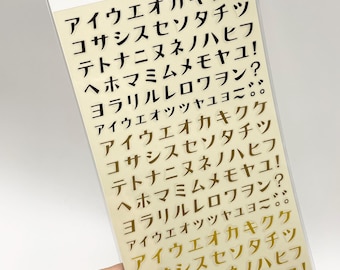 アイウエオカキクケ
コサシスセソタチツ
テトナニヌネノハヒフ
ヘホマミムメモヤユ!
ヨラリルレロワヲン?
アイウエオツツヤユヨー
アイウエオカキクケ
コサシスセソタチツ
テトナニヌネノハヒフ
ヘホマミムメモヤユ!
ヨラリルレロワヲン?
アイウエオツツヤユヨー
アイウエオカキクケ
コサシスセソタチツ
テトナニヌネノハヒフ